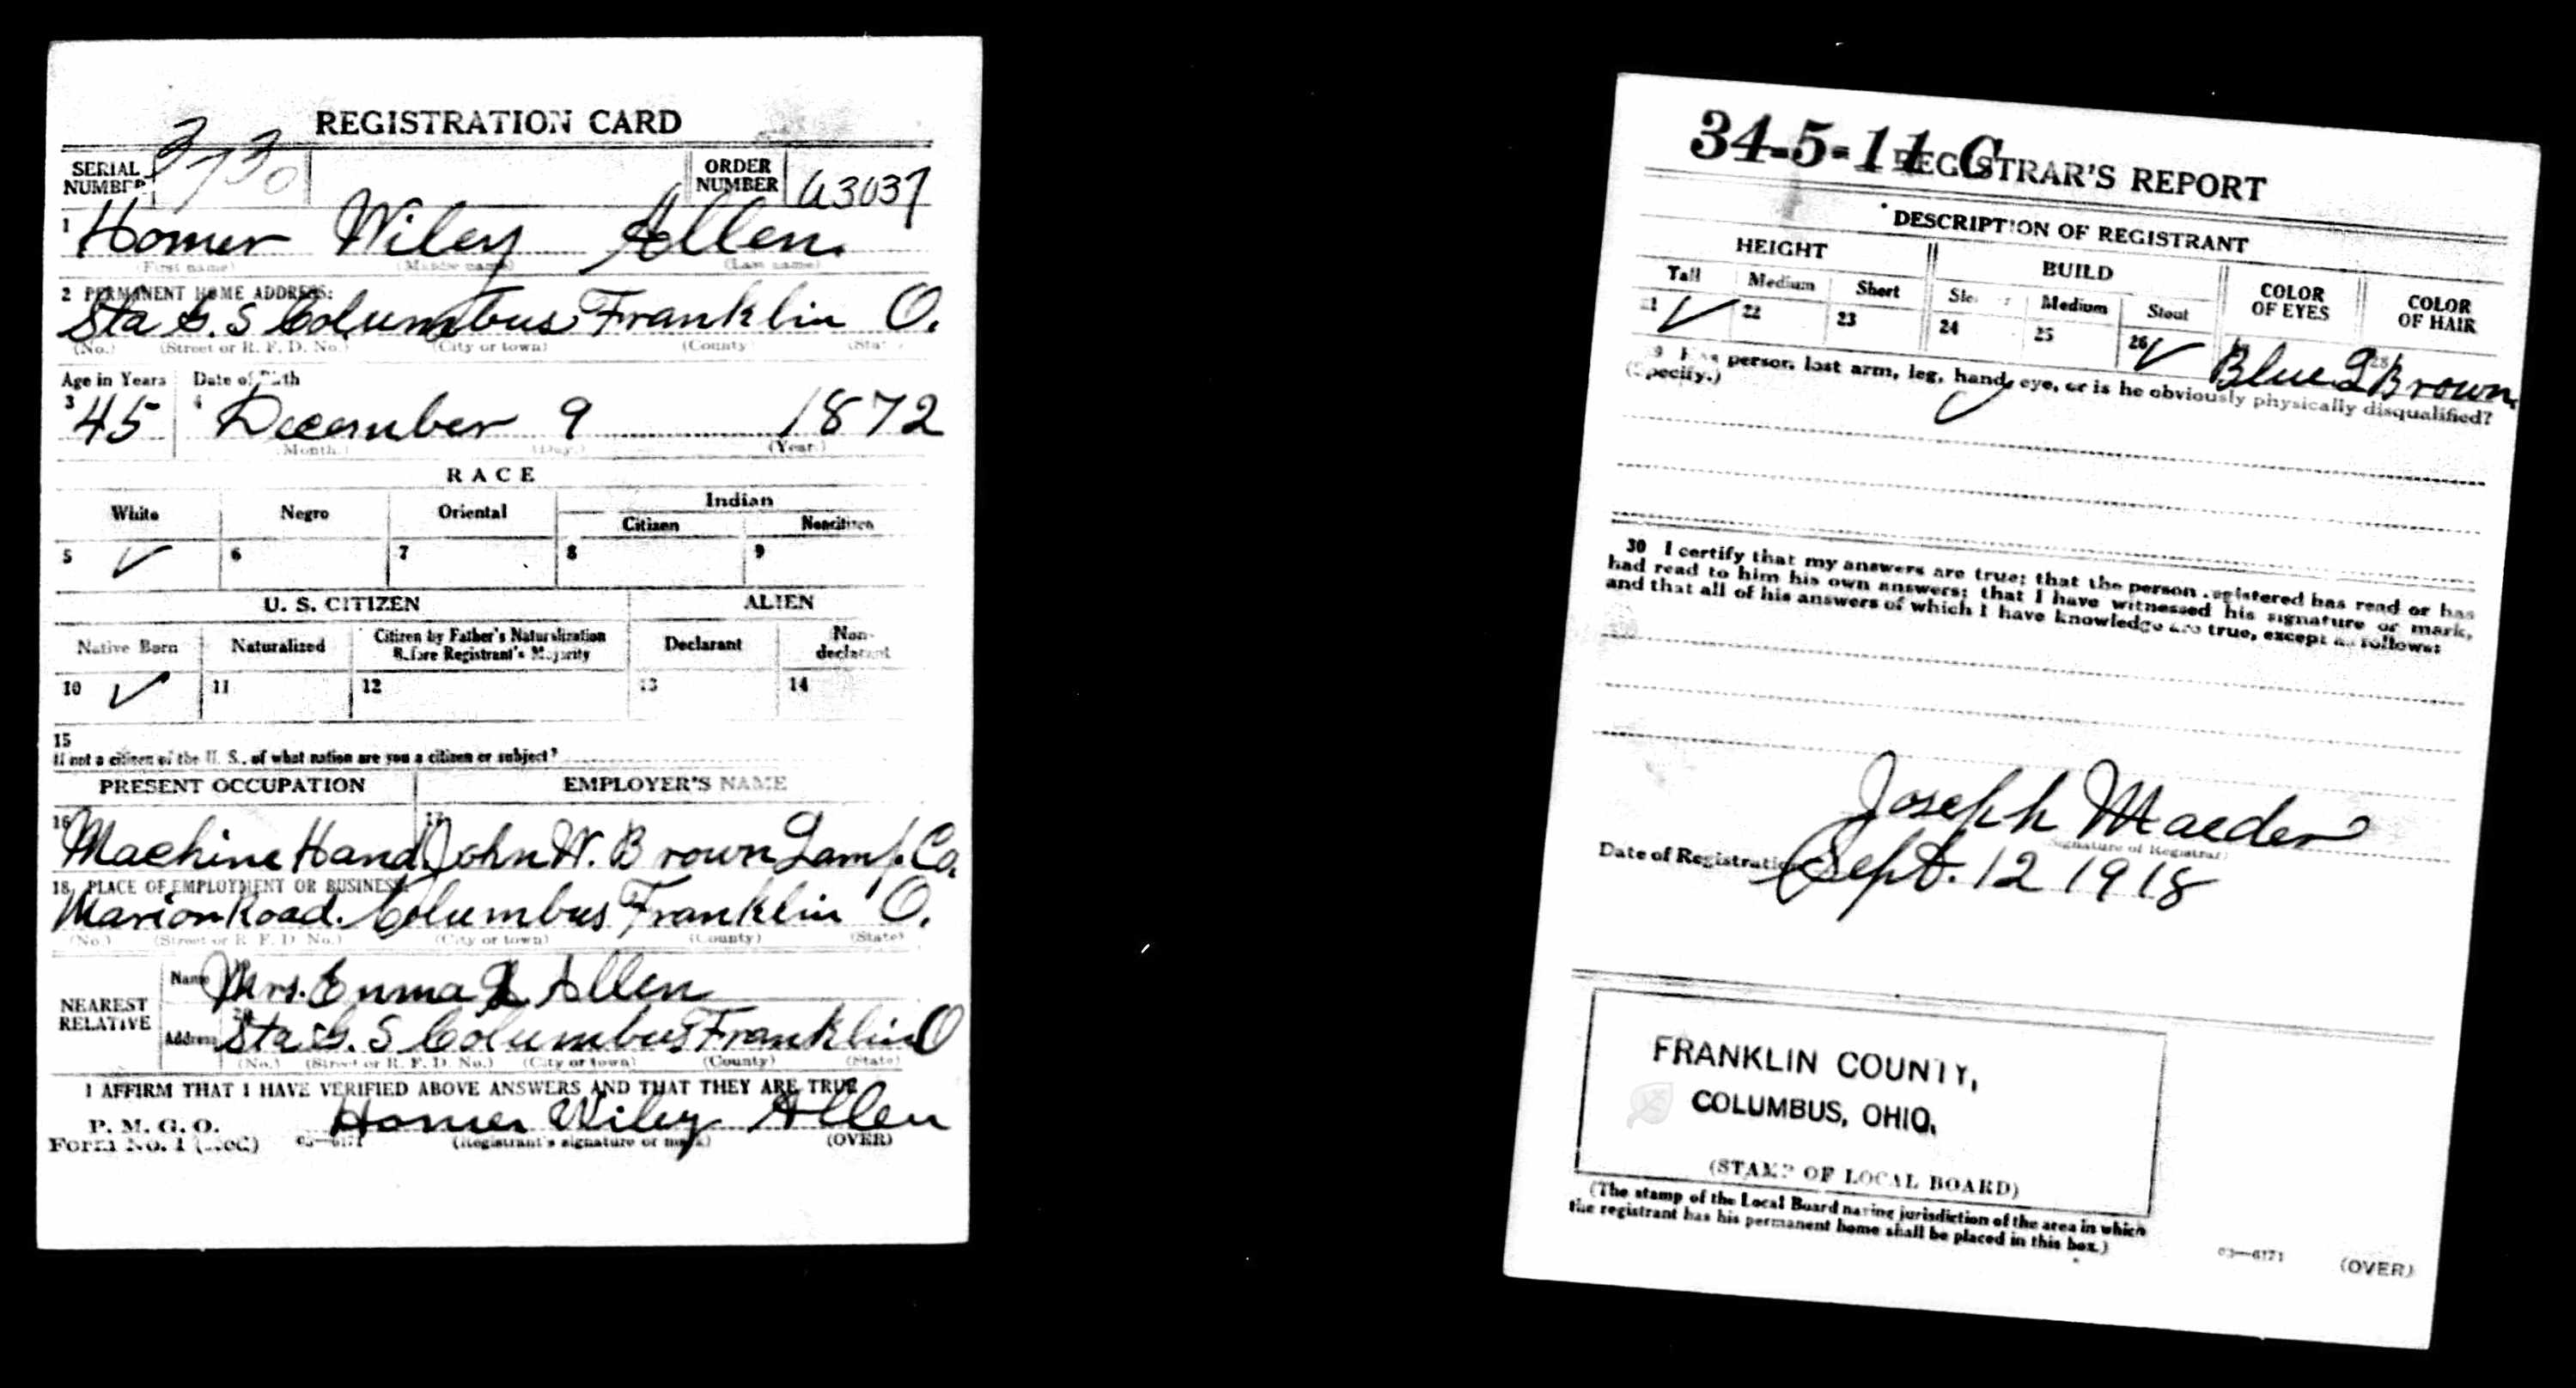 REGISTRATION CARD
SERIAL NUMBER 3730
ORDER NUMBER A3037
1 Homer Wiley Allen.
(First name) (Middle name) (Last name)
2 PERMANENT HOME ADDRESS:
Sta G. S Columbus Franklin O.
(No.) (Street or R. F. D. No.) (City or town) (County) (State)
Age in Years Date of Birth
3 45 4 December 9 1872
(Month.) (Day.) (Year.)
RACE
White Negro Oriental Indian
Citizen Noncitizen
5 ✓ 6 7 8 9
U. S. CITIZEN ALIEN
Native Born Naturalized Citizen by Father's Naturalization Before Registrant's Majority Declarant Non-declarant
10 ✓ 11 12 13 14
15
If not a citizen of the U. S., of what nation are you a citizen or subject?
PRESENT OCCUPATION EMPLOYER'S NAME
16 Machine Hand 17 John W. Brown Lamp. Co.
18 PLACE OF EMPLOYMENT OR BUSINESS:
Marion Road. Columbus Franklin O.
(No.) (Street or R. F. D. No.) (City or town) (County) (State)
NEAREST RELATIVE
Name 19 Mrs. Emma L Allen
Address 20 Sta G. S Columbus Franklin O
(No.) (Street or R. F. D. No.) (City or town) (County) (State)
I AFFIRM THAT I HAVE VERIFIED ABOVE ANSWERS AND THAT THEY ARE TRUE
P. M. G. O.
Form No. 1 (Red) 03—6171 Homer Wiley Allen
(Registrant's signature or mark) (OVER)
34-5-11 C
REGISTRAR'S REPORT
DESCRIPTION OF REGISTRANT
HEIGHT BUILD COLOR OF EYES COLOR OF HAIR
Tall Medium Short Slender Medium Stout
21 ✓ 22 23 24 25 26 ✓ 27 Blue 28 Brown
29 Has person lost arm, leg, hand, eye, or is he obviously physically disqualified?
(Specify.)
30 I certify that my answers are true; that the person registered has read or has
had read to him his own answers; that I have witnessed his signature or mark,
and that all of his answers of which I have knowledge are true, except as follows:
Joseph Maeder
(Signature of Registrar)
Date of Registration Sept. 12 1918
FRANKLIN COUNTY,
COLUMBUS, OHIO.
(STAMP OF LOCAL BOARD)
(The stamp of the Local Board having jurisdiction of the area in which
the registrant has his permanent home shall be placed in this box.)
03—6171 (OVER)